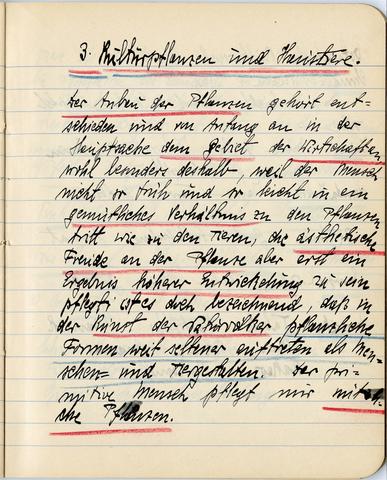 3. Kulturpflanzen und Haustiere.
Der Anbau der Pflanzen gehört ent-
schieden und von Anfang an in der
Hauptsache dem gebiet der Wirtschaft an
wohl besonders deshalb, weil der Mensch
nicht so früh und so leicht in ein
gemütliches Verhältnis zu den Pflanzen
tritt wie zu den Tieren, die ästhetische
Freude an der Pflanze aber erst ein
Ergebnis höherer Entwickelung zu sein
pflegt; ist es doch bezeichnend, daß in
der Kunst der Naturvölker pflanzliche
Formen weit seltener auftreten als Men-
schen= und Tiergestalten. Der pri-
mitive Mensch pflegt nur
Pflanzen.